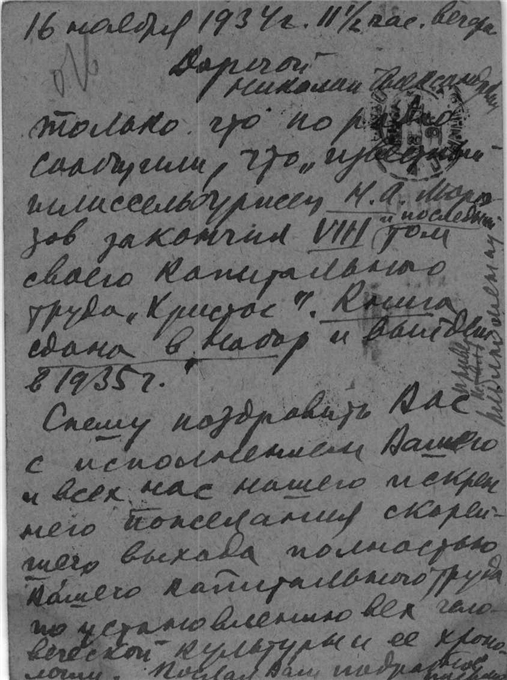 16 ноября 1934 г. 11 1/2 час. вечера
Дорогой
Николай Александрович
только что по радио
сообщили, что „известный
шлиссельбуржец Н. А. Моро-
зов закончил VIII и последний том
своего капитального
труда „Христос“. Книга
сдана в набор и выйдет
в 1935 г.
Спешу поздравить Вас
с исполнением Вашего
и всех нас нашего искрен
него пожелания скорей-
шего выхода полностью
Вашего капитального труда
по установлению вех чело-
веческой культуры и ее хроно-
логии. Послал Вам подробное